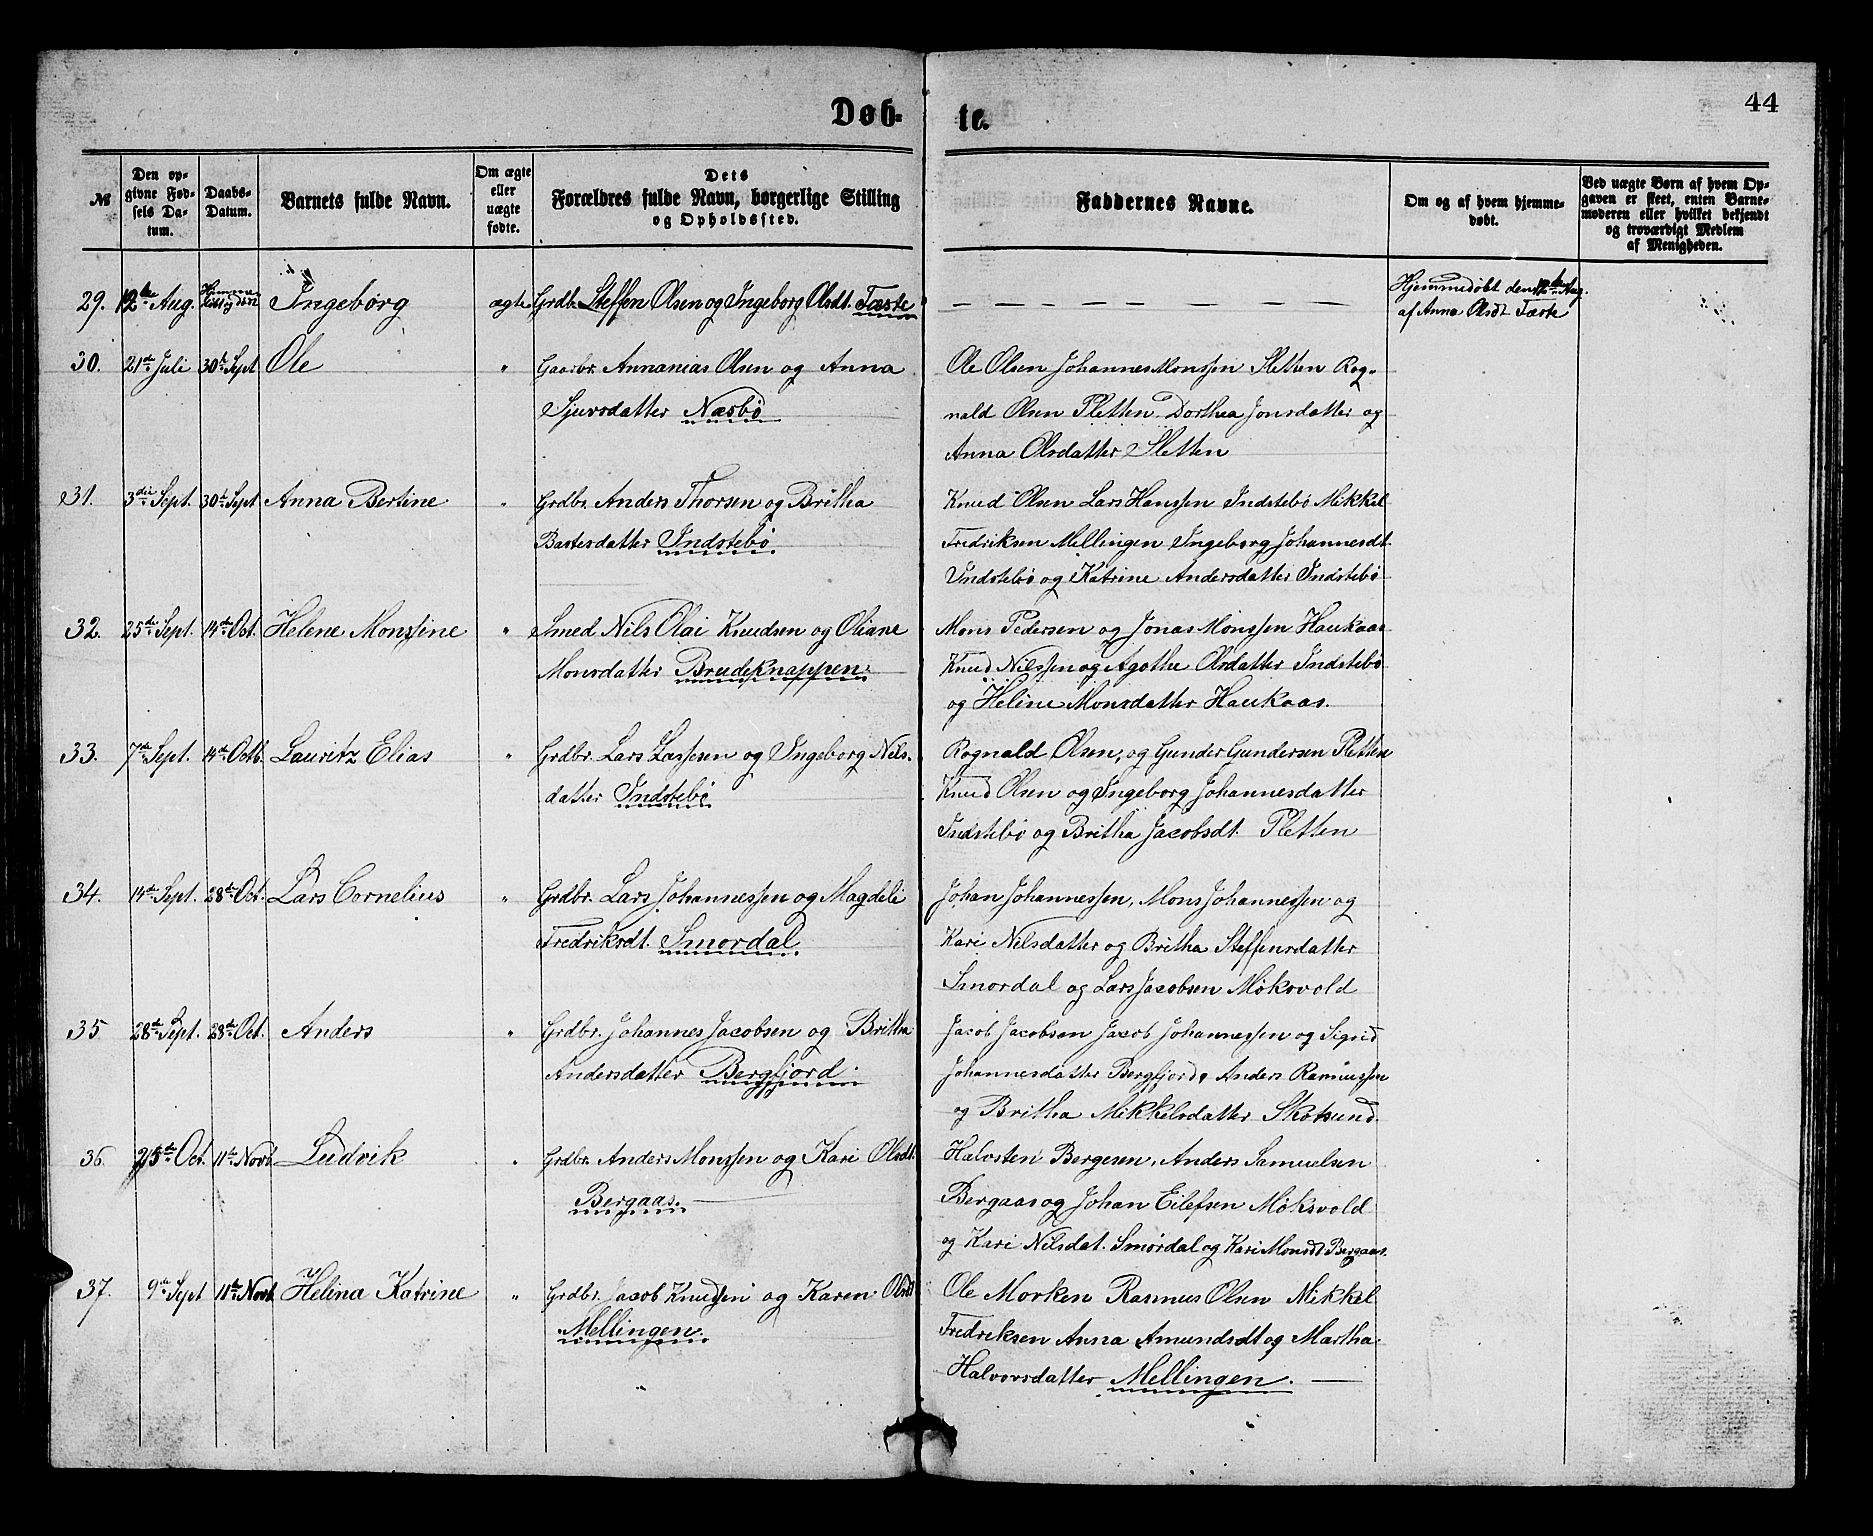 44
Døb- te.
№
Den opgivne Fødsels Datum.
Daabs-Datum.
Barnets fulde Navn.
Om ægte eller uægte fødte.
Dets Forældres fulde Navn, borgerlige Stilling og Opholdssted.
Faddernes Navne.
Om og af hvem hjemmedøbt.
Ved uægte Børn af hvem Opgaven er skeet, enten Barnemoderen eller hvilket bekjendt og troværdigt Medlem af Menigheden.
29. 12te Aug. Ingeborg ægte Grdbr. Steffen Olsen og Ingeborg Olsdt. Tæste — — — — — — — Hjemmedøbt den 12te Aug.
af Anna Olsdt Tæste
30. 21de Juli 30te Sept Ole " Gaarbr. Annanias Olsen og Anna Ole Olsen Johannes Monssen Sletten Rog-
Sjursdatter Næsbø nald Olsen Pletten Dorthea Jonsdatter og
Anna Olsdatter Sletten
31. 3die Sept. 30te Sept Anna Bertine " Grdbr. Anders Thorsen og Britha Knud Olsen Lars Hanssen Indstebø Mikkel
Bastesdatter Indstebø Fredriksen Mellingen Ingeborg Johannesdt.
Indstebø og Katrine Andersdatter Indstebø
32. 25de Sept. 14de Oct. Helene Monssine " Smed Nils Olai Knudsen og Oliane Mons Pedersen og Jonas Monssen Haukaas
Monsdatter Brudeknappen Knud Nilssen og Agothe Olsdatter Indstebø
og Heline Monsdatter Haukaas.
33. 7de Sept. 14de Octb. Lauritz Elias " Grdbr. Lars Larssen og Ingeborg Nils- Rognald Olsen, og Gunder Gundersen Pletten
datter Indstebø Knud Olsen og Ingeborg Johannesdatter
Indstebø og Britha Jacobsdt. Pletten
34. 14de Sept. 28de Oct. Lars Cornelius " Grdbr. Lars Johannessen og Magdeli Johan Johannessen, Mons Johannessen og
Fredriksdt. Smørdal Kari Nilsdatter og Britha Steffensdatter
Smørdal og Lars Jacobsen Møksvold
35. 28de Sept. 28de Oct. Anders " Grdbr. Johannes Jacobsen og Britha Jacob Jacobsen Jacob Johannessen og Sigrid
Andersdatter Bergfjord. Johannesdatter Bergfjord, Anders Rasmussen
og Britha Mikkelsdatter Skotsund.
36. 25de Oct. 11te Novb. Ludvik " Grdbr. Anders Monssen og Kari Olsdt. Halvsten Bergesen, Anders Samuelsen
Bergaas. Bergaas og Johan Eilefsen Møksvold
og Kari Nilsdat. Smørdal og Kari Monsdt Bergaas.
37. 9de Sept 11te Novb. Helina Katrine " Grdbr. Jacob Knudsen og Karen Olsdt Ole Morken Rasmus Olsen Mikkel
Mellingen. Fredriksen Anna Amundsdt og Martha
Halvorsdatter Mellingen.